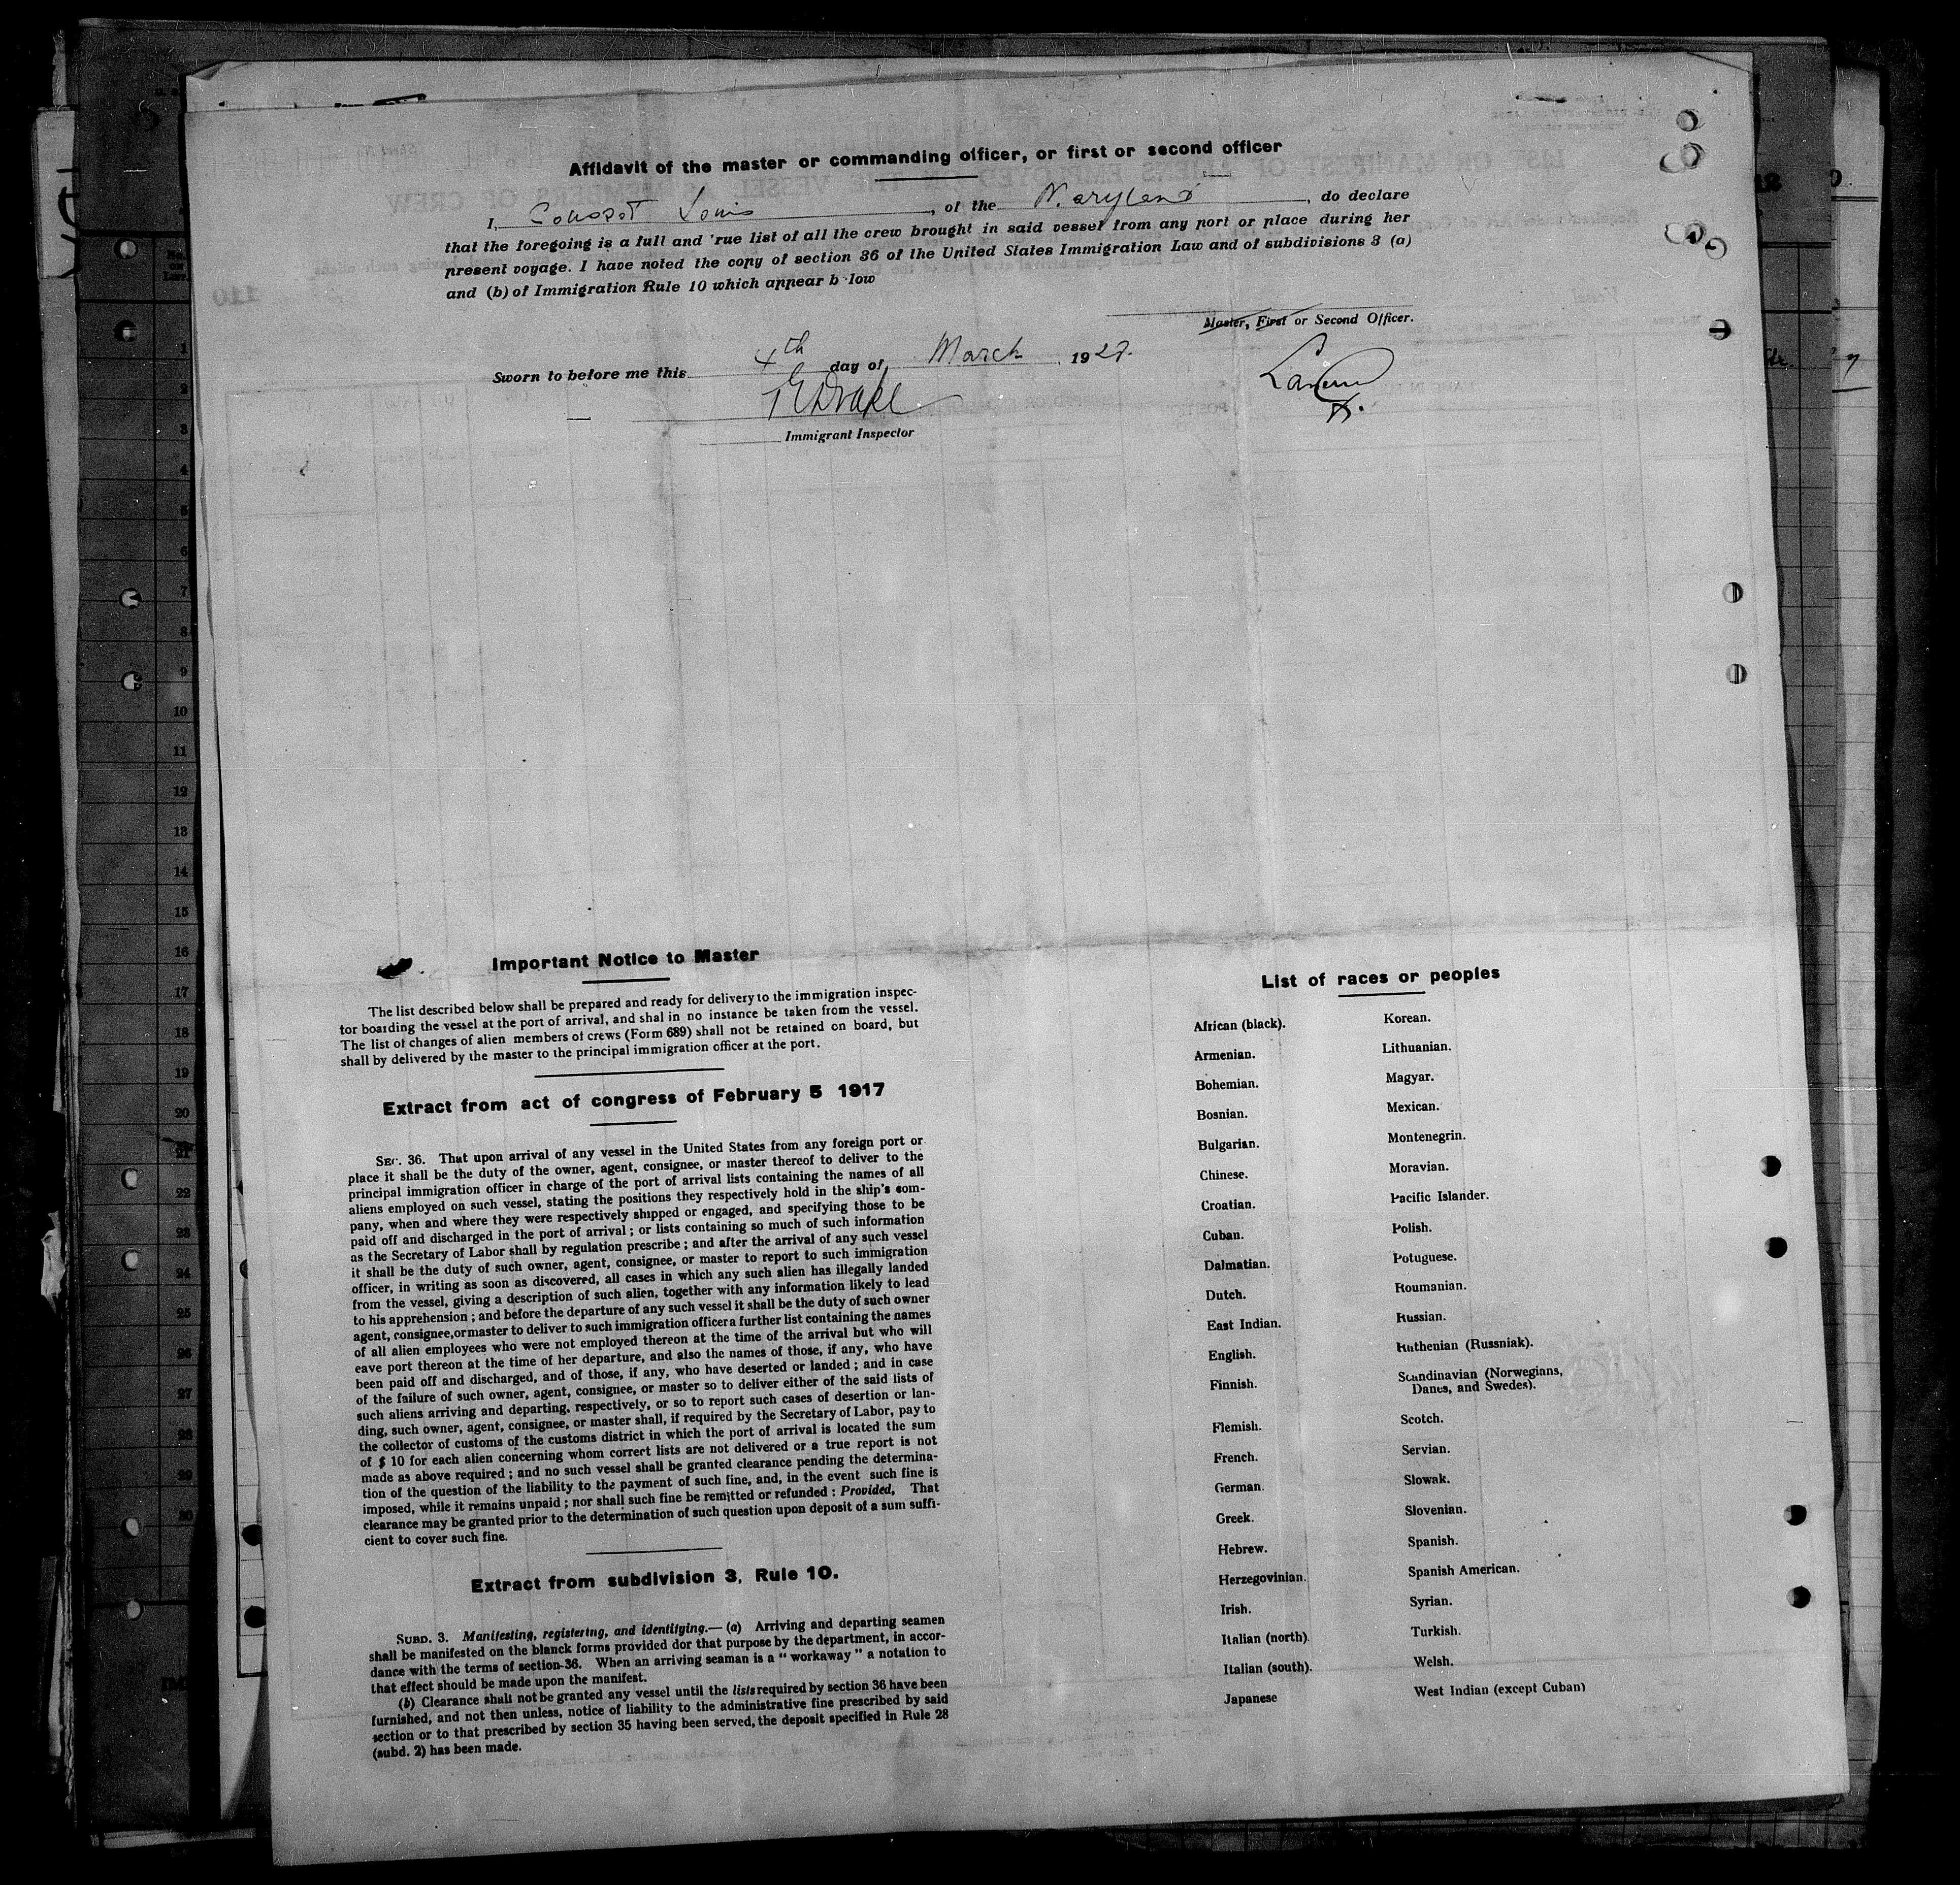 Affidavit of the master or commanding officer, or first or second officer
I, Louis, of the Maryland, do declare
that the foregoing is a full and 'rue list of all the crew brought in said vessel from any port or place during her
present voyage. I have noted the copy of section 36 of the United States Immigration Law and of subdivisions 3 (a)
and (b) of Immigration Rule 10 which appear b low
Master, First or Second Officer.
Sworn to before me this 4th day of March 1928.
Drake
Immigrant Inspector
110
1
2
3
4
5
6
7
8
9
10
11
12
13
14
15
16
17
18
19
20
21
22
23
24
25
26
27
28
29
30
Important Notice to Master
The list described below shall be prepared and ready for delivery to the immigration inspec-
tor boarding the vessel at the port of arrival, and shal in no instance be taken from the vessel.
The list of changes of alien members of crews (Form 689) shall not be retained on board, but
shall by delivered by the master to the principal immigration officer at the port.
Extract from act of congress of February 5 1917
SEC. 36. That upon arrival of any vessel in the United States from any foreign port or
place it shall be the duty of the owner, agent, consignee, or master thereof to deliver to the
principal immigration officer in charge of the port of arrival lists containing the names of all
aliens employed on such vessel, stating the positions they respectively hold in the ship's com-
pany, when and where they were respectively shipped or engaged, and specifying those to be
paid off and discharged in the port of arrival ; or lists containing so much of such information
as the Secretary of Labor shall by regulation prescribe ; and after the arrival of any such vessel
it shall be the duty of such owner, agent, consignee, or master to report to such immigration
officer, in writing as soon as discovered, all cases in which any such alien has illegally landed
from the vessel, giving a description of such alien, together with any information likely to lead
to his apprehension ; and before the departure of any such vessel it shall be the duty of such owner
agent, consignee,ormaster to deliver to such immigration officer a further list containing the names
of all alien employees who were not employed thereon at the time of the arrival but who will
eave port thereon at the time of her departure, and also the names of those, if any, who have
been paid off and discharged, and of those, if any, who have deserted or landed ; and in case
of the failure of such owner, agent, consignee, or master so to deliver either of the said lists of
such aliens arriving and departing, respectively, or so to report such cases of desertion or lan-
ding, such owner, agent, consignee, or master shall, if required by the Secretary of Labor, pay to
the collector of customs of the customs district in which the port of arrival is located the sum
of $ 10 for each alien concerning whom correct lists are not delivered or a true report is not
made as above required ; and no such vessel shall be granted clearance pending the determina-
tion of the question of the liability to the payment of such fine, and, in the event such fine is
imposed, while it remains unpaid ; nor shall such fine be remitted or refunded : Provided, That
clearance may be granted prior to the determination of such question upon deposit of a sum suffi-
cient to cover such fine.
Extract from subdivision 3, Rule 10.
SUBD. 3. Manifesting, registering, and identifying.— (a) Arriving and departing seamen
shall be manifested on the blanck forms provided dor that purpose by the department, in accor-
dance with the terms of section-36. When an arriving seaman is a " workaway " a notation to
that effect should be made upon the manifest.
(b) Clearance shall not be granted any vessel until the lists required by section 36 have been
furnished, and not then unless, notice of liability to the administrative fine prescribed by said
section or to that prescribed by section 35 having been served, the deposit specified in Rule 28
(subd. 2) has been made.
List of races or peoples
African (black).
Armenian.
Bohemian.
Bosnian.
Bulgarian.
Chinese.
Croatian.
Cuban.
Dalmatian.
Dutch.
East Indian.
English.
Finnish.
Flemish.
French.
German.
Greek.
Hebrew.
Herzegovinian.
Irish.
Italian (north).
Italian (south).
Japanese
Korean.
Lithuanian.
Magyar.
Mexican.
Montenegrin.
Moravian.
Pacific Islander.
Polish.
Potuguese.
Roumanian.
Russian.
Ruthenian (Russniak).
Scandinavian (Norwegians,
Danes, and Swedes).
Scotch.
Servian.
Slowak.
Slovenian.
Spanish.
Spanish American.
Syrian.
Turkish.
Welsh.
West Indian (except Cuban)